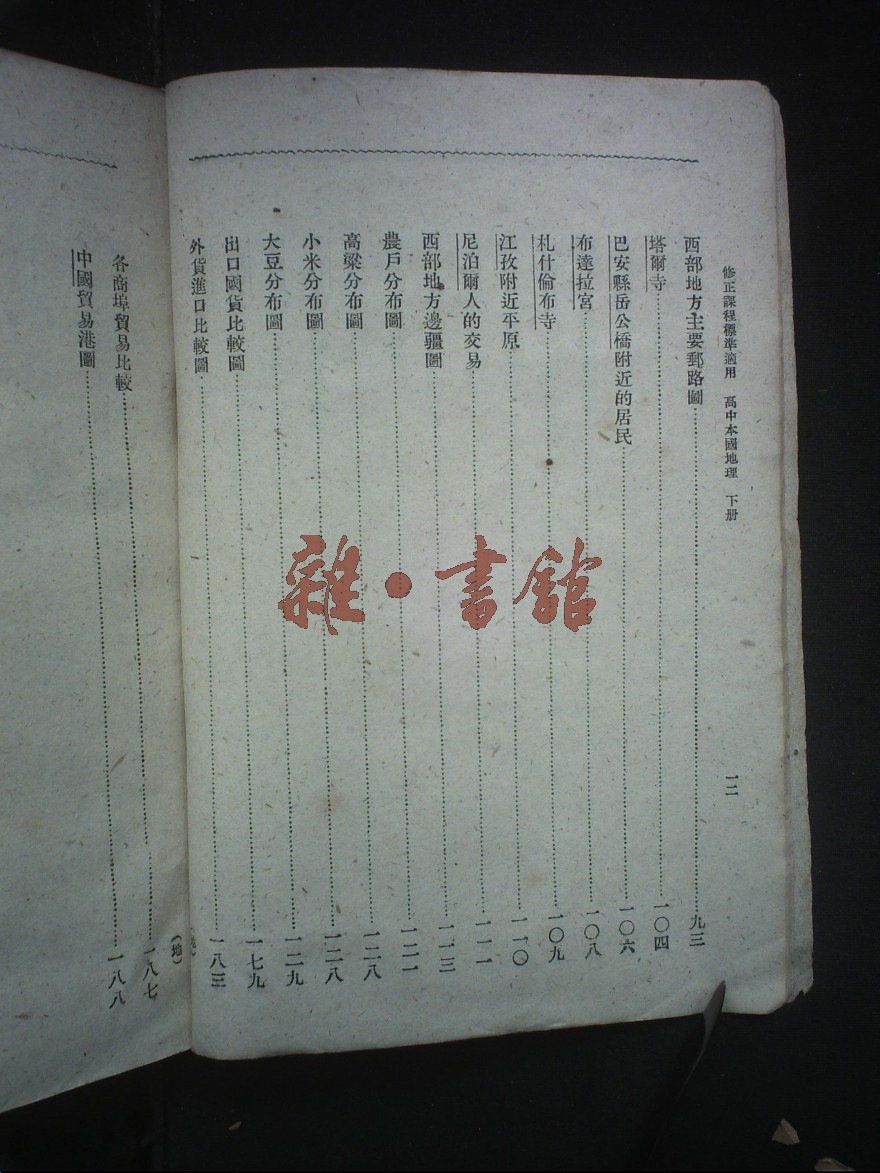 修正課程標準適用　高中本國地理　下册　一二
西部地方主要郵路圖……九三
塔爾寺……一〇四
巴安縣岳公橋附近的居民……一〇六
布達拉宮……一〇八
札什倫布寺……一〇九
江孜附近平原……一一〇
尼泊爾人的交易……一一一
西部地方邊疆圖……一一三
農戶分布圖……一二一
高粱分布圖……一二八
小米分布圖……一二八
大豆分布圖……一二九
出口國貨比較圖……一七九
外貨進口比較圖……一八三
(地)
各商埠貿易比較……一八七
中國貿易港圖……一八八
雜·書館